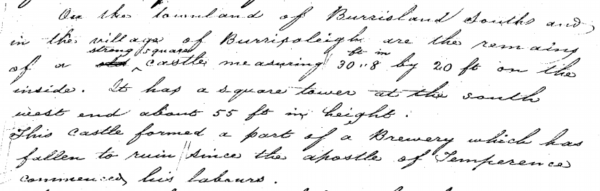 On the townland of Burrisland South and
in the village of Burrisoleigh are the remains
strong square
of a old castle measuring 30 ft 8 in by 20 ft on the
inside. It has a square tower at the south
west end about 55 ft in height.
This castle formed a part of a Brewery which has
fallen to ruin since the apostle of Temperence
commenced his labours.